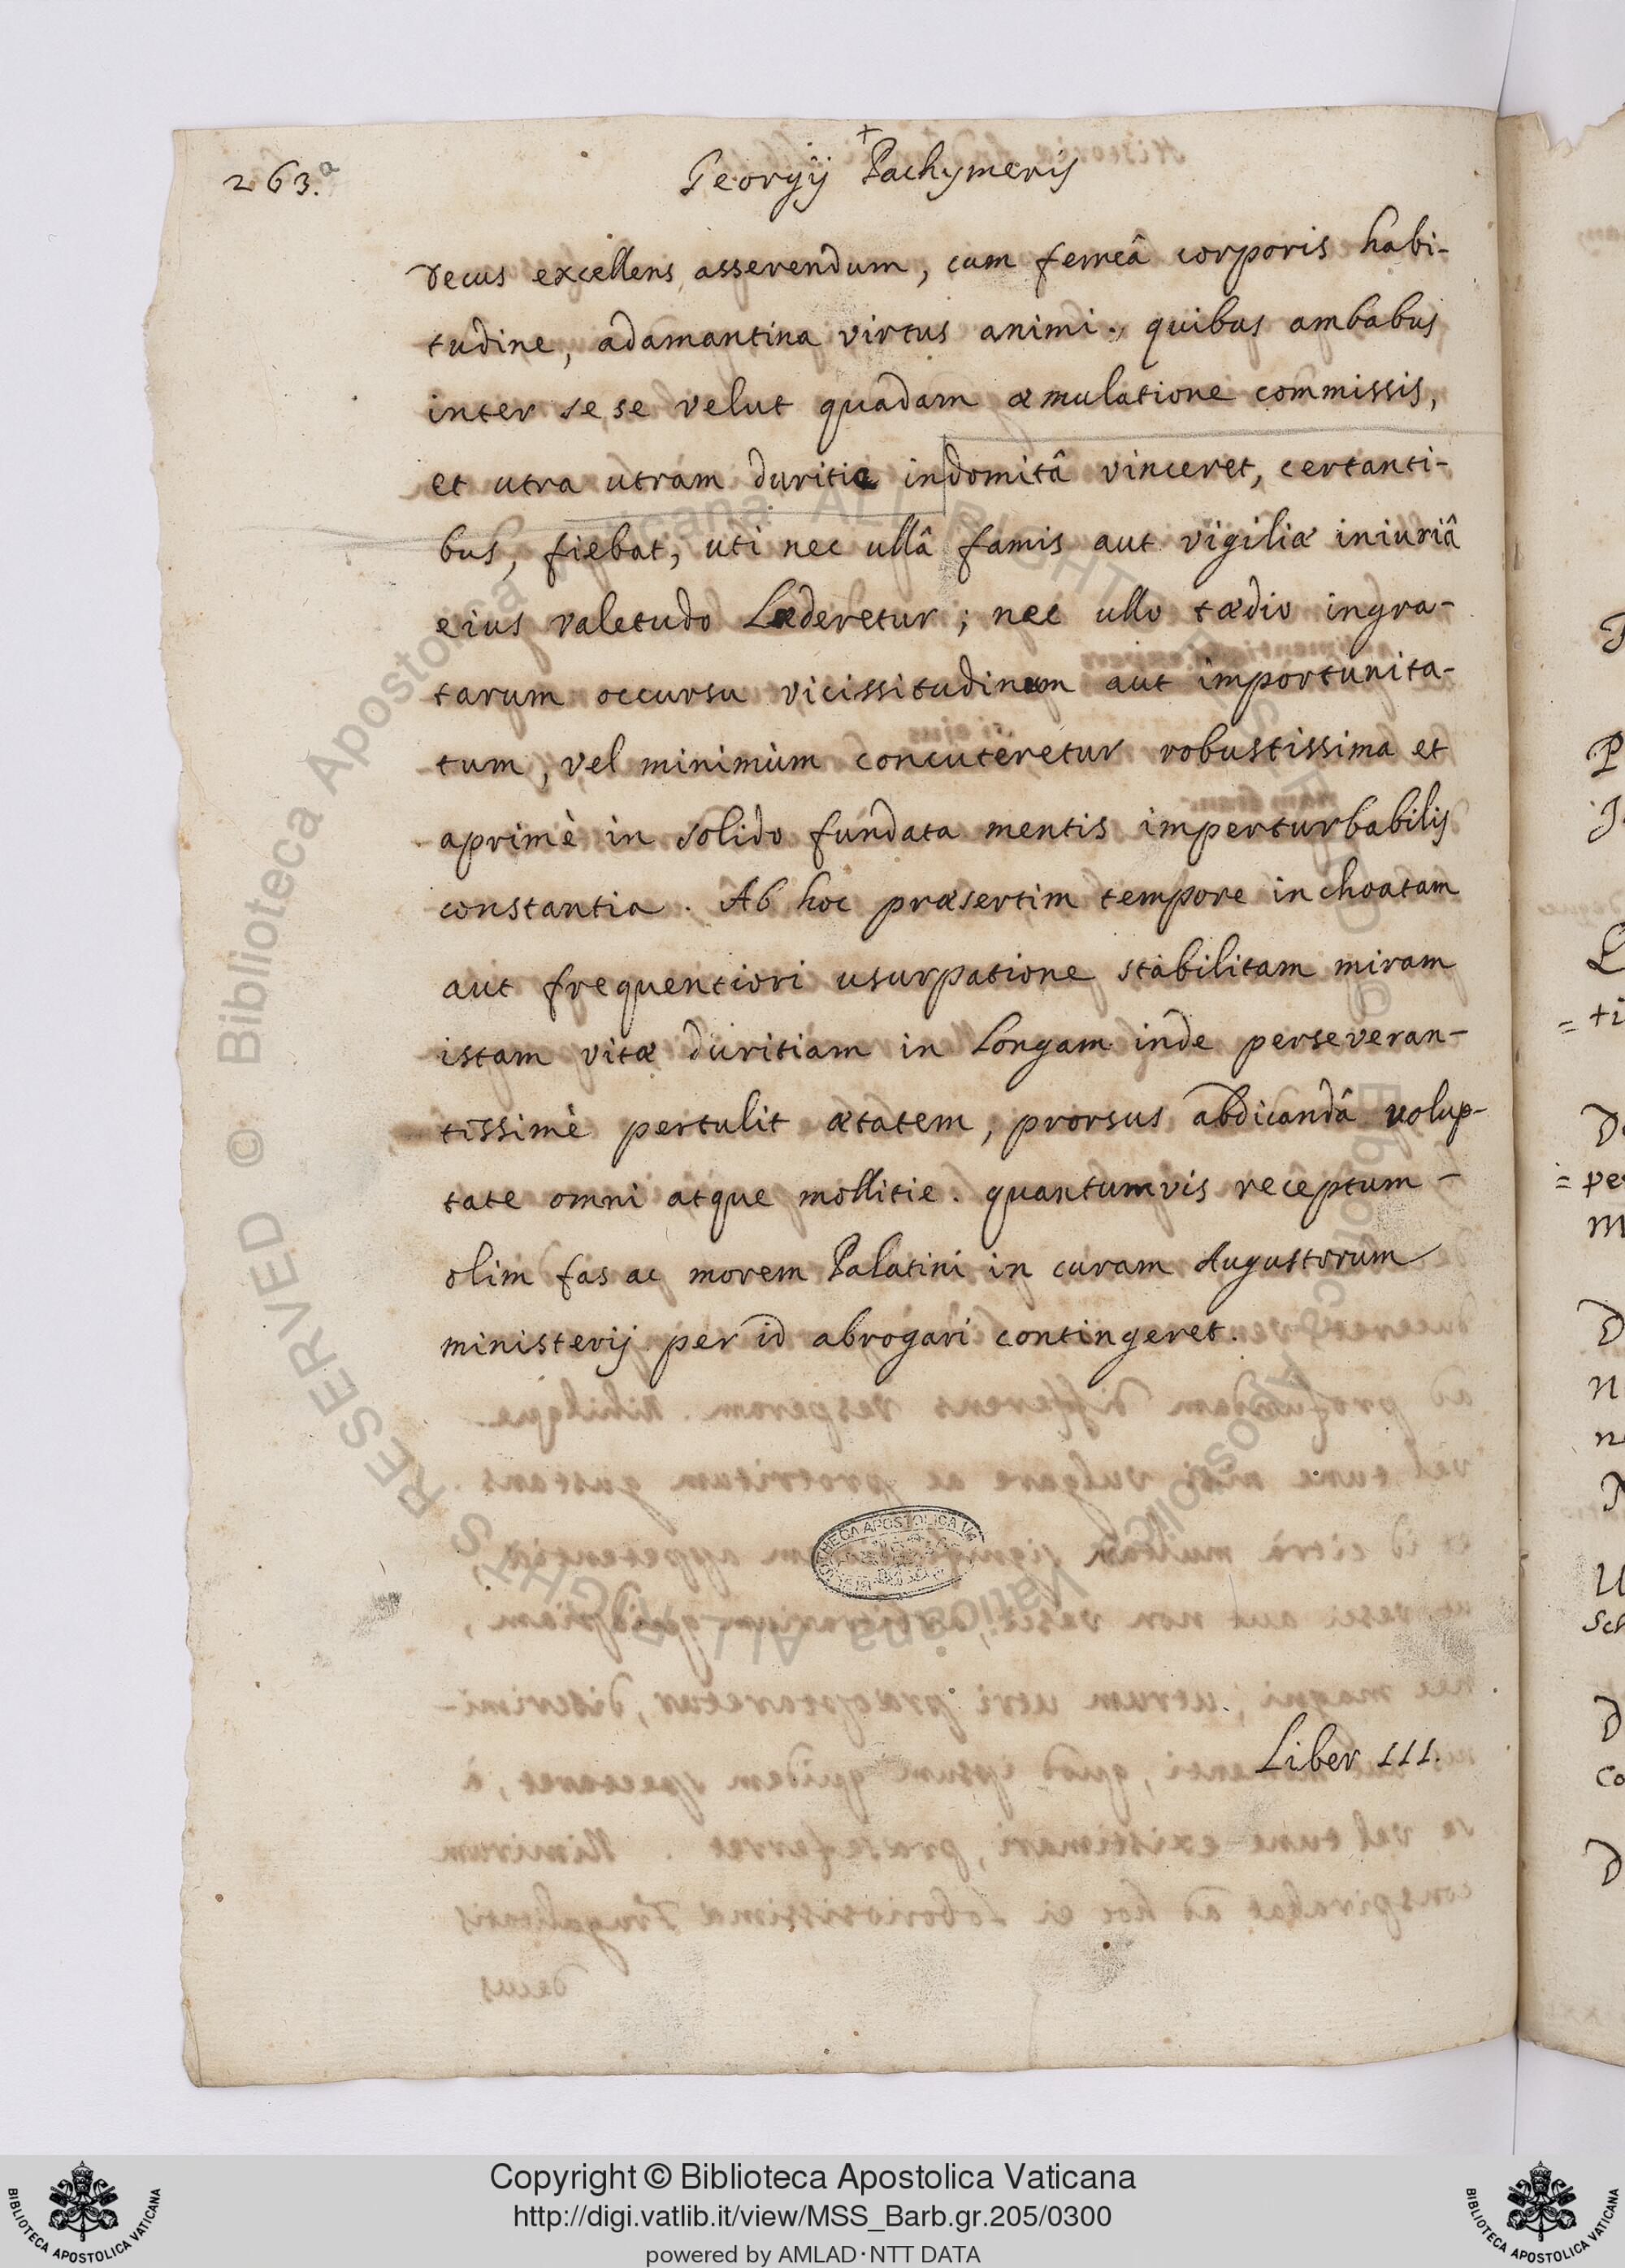 263.a
+
Georgij Pachymeris
decus excellens asserendum, cum ferreâ corporis habi-
tudine, adamantina virtus animi. quibus ambabus
inter se se velut quadam æmulatione commissis,
et utra utram duritie indomitâ vinceret, certanti-
bus, fiebat, uti nec ullâ famis aut vigiliæ iniuriâ
eius valetudo Læderetur; nec ullo tædio ingra-
tarum occursu vicissitudinum aut importunita-
tum, vel minimùm concuteretur robustissima et
aprimè in solido fundata mentis imperturbabilis
constantia. Ab hoc præsertim tempore inchoatam
aut frequentiori usurpatione stabilitam miram
istam vitæ duritiam in Longam inde perseveran-
tissimè pertulit ætatem, prorsus abdicandâ volup-
tate omni atque mollitie. quantumvis receptum -
olim fas ac morem Palatini in curam Augustorum
ministerij per id abrogari contingeret.
Liber III.
© Biblioteca Apostolica Vaticana ALL RIGHTS RESERVED
Copyright © Biblioteca Apostolica Vaticana
http://digi.vatlib.it/view/MSS_Barb.gr.205/0300
powered by AMLAD·NTT DATA
BIBLIOTECA APOSTOLICA VATICANA
BIBLIOTECA APOSTOLICA VATICANA